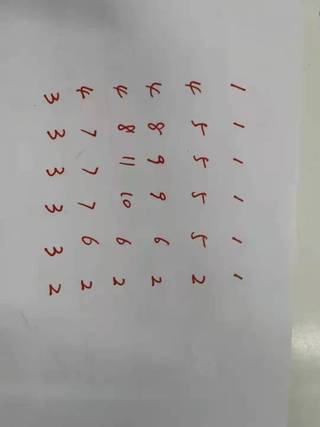 3 4 4 4 4 1
3 7 8 8 5 1
3 7 11 9 5 1
3 7 10 9 5 1
3 6 6 6 5 1
2 2 2 2 2 1